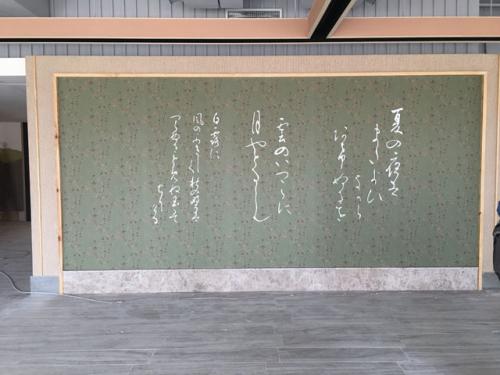 夏の夜は
またよひ
なから
あけぬるを
雲のいつこに
月やとるらん
白露に
風のふきしく秋の野は
つらぬきとめぬ玉そ
ちりける